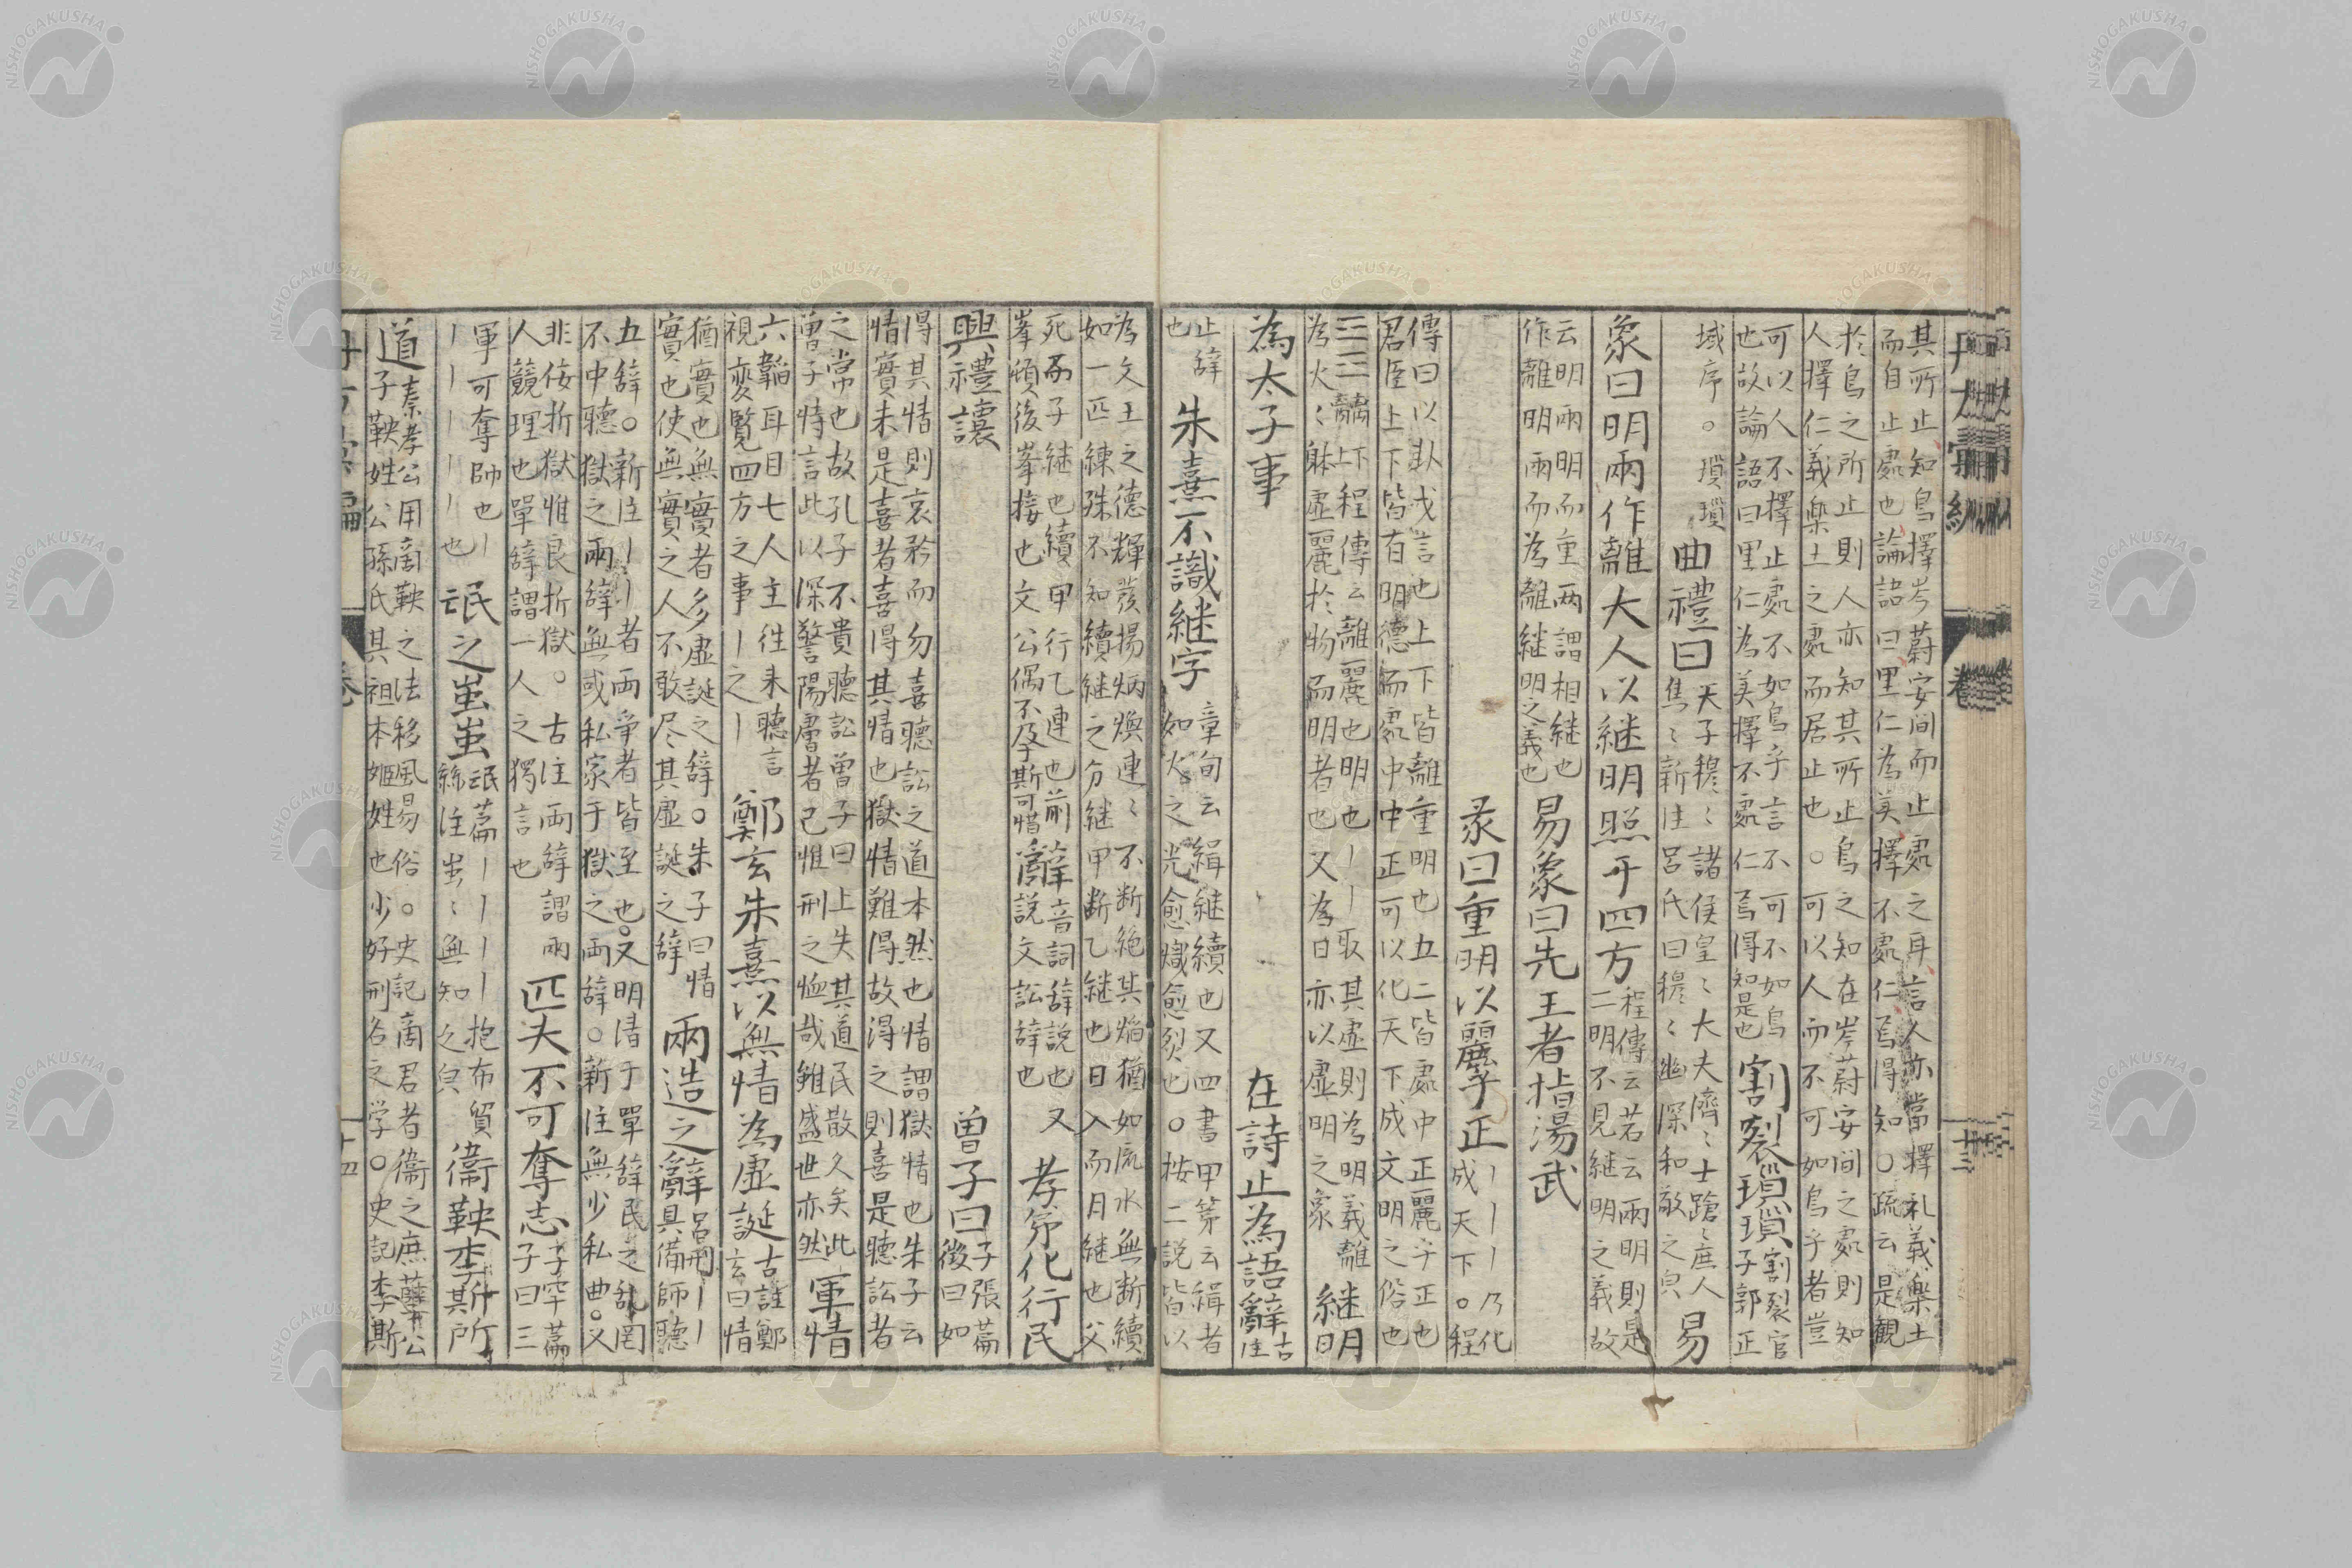 其所止知鳥擇岑蔚安間而止處之耳言人亦當擇礼義樂土
而自止處也論語曰里仁為美擇不處仁焉得知○疏云是観
於鳥之所止則人亦知其所止鳥之知在岑蔚安間之處則知
人擇仁義樂土之處而居止也○可以人而不可如鳥乎者豈
可以人不擇止處不如鳥乎言不可不如鳥
也故論語曰里仁為美擇不處仁焉得知是也
割裂瑣瑣
割裂官
子郭正
域序○瑣瑣
曲禮曰
天子穆〻諸侯皇〻大夫濟〻士蹌〻庶人
焦〻新注呂氏曰穆〻幽深和敬之皃
易
象曰明兩作離大人以継明照于四方
程傳云若云兩明則是
二明不見継明之義故
云明兩明而重兩謂相継也
作離明兩而為離継明之義也
易象曰先王者指湯武
彖曰重明以麗乎正
丨丨丨乃化
成天下○程
傳曰以卦戈言也上下皆離重明也五二皆處中正麗乎正也
君臣上下皆有明德而處中中正可以化天下成文明之俗也
☲☲離下離上程傳云離麗也明也丨丨取其虛則為明義離
為火〻躰虛麗於物而明者也又為日亦以虛明之象
継明
為太子事
在詩止為語辭
古注
止辭也
朱熹不識継字
章句云緝継續也又四書甲第云緝者
如火之光愈熾愈烈也○按二説皆以
為文王之德輝發揚炳煥連〻不断絶其焔猶如流水無断續
如一匹練殊不知續継之分継甲断乙継也日入而月継也父
死而子継也續甲行乙連也前
峯頽後峯接也文公偶不及斯可惜
辭
音詞辞説也又
説文訟辞也
孝弟化行民
興禮讓
曽子曰
子張篇
後曰如
得其情則哀矜而勿喜聽訟之道本然也情謂獄情也朱子云
情實未是喜者喜得其情也獄情難得故得之則喜是聽訟者
之常也故孔子不貴聽訟曽子曰上失其道民散久矣此
曽子特言此以深警陽膚者已惟刑之恤哉雖盛世亦然
軍情
六韜耳目七人主往来聽言
視変覧四方之事丨之丨
鄭玄朱熹以無情為虛誕
古註鄭
玄曰情
猶實也無實者多虛誕之辞○朱子曰情
實也使無實之人不敢尽其虛誕之辞
兩造之辭
呂刑丨丨
具備師聽
五辞○新注丨丨者兩争者皆至也○又明清于單辞民之乱罔
不中聽獄之兩辞無或私家于獄之兩辞○新注無少私曲○又
非佞折獄惟良折獄○古注兩辞謂兩
人競理也單辞謂一人之獨言也
匹夫不可奪志
子罕篇
子曰三
軍可奪帥也丨
丨丨丨丨丨也
氓之蚩蚩
氓篇丨丨丨丨抱布貿
絲注蚩〻無知之皃
衞鞅李斯所
道
秦孝公用商鞅之法移風易俗○史記商君者衞之庶孽公
子鞅姓公孫氏其祖本姬姓也少好刑名之学○史記李斯
十三
卷
十四
NISHOGAKUSHA